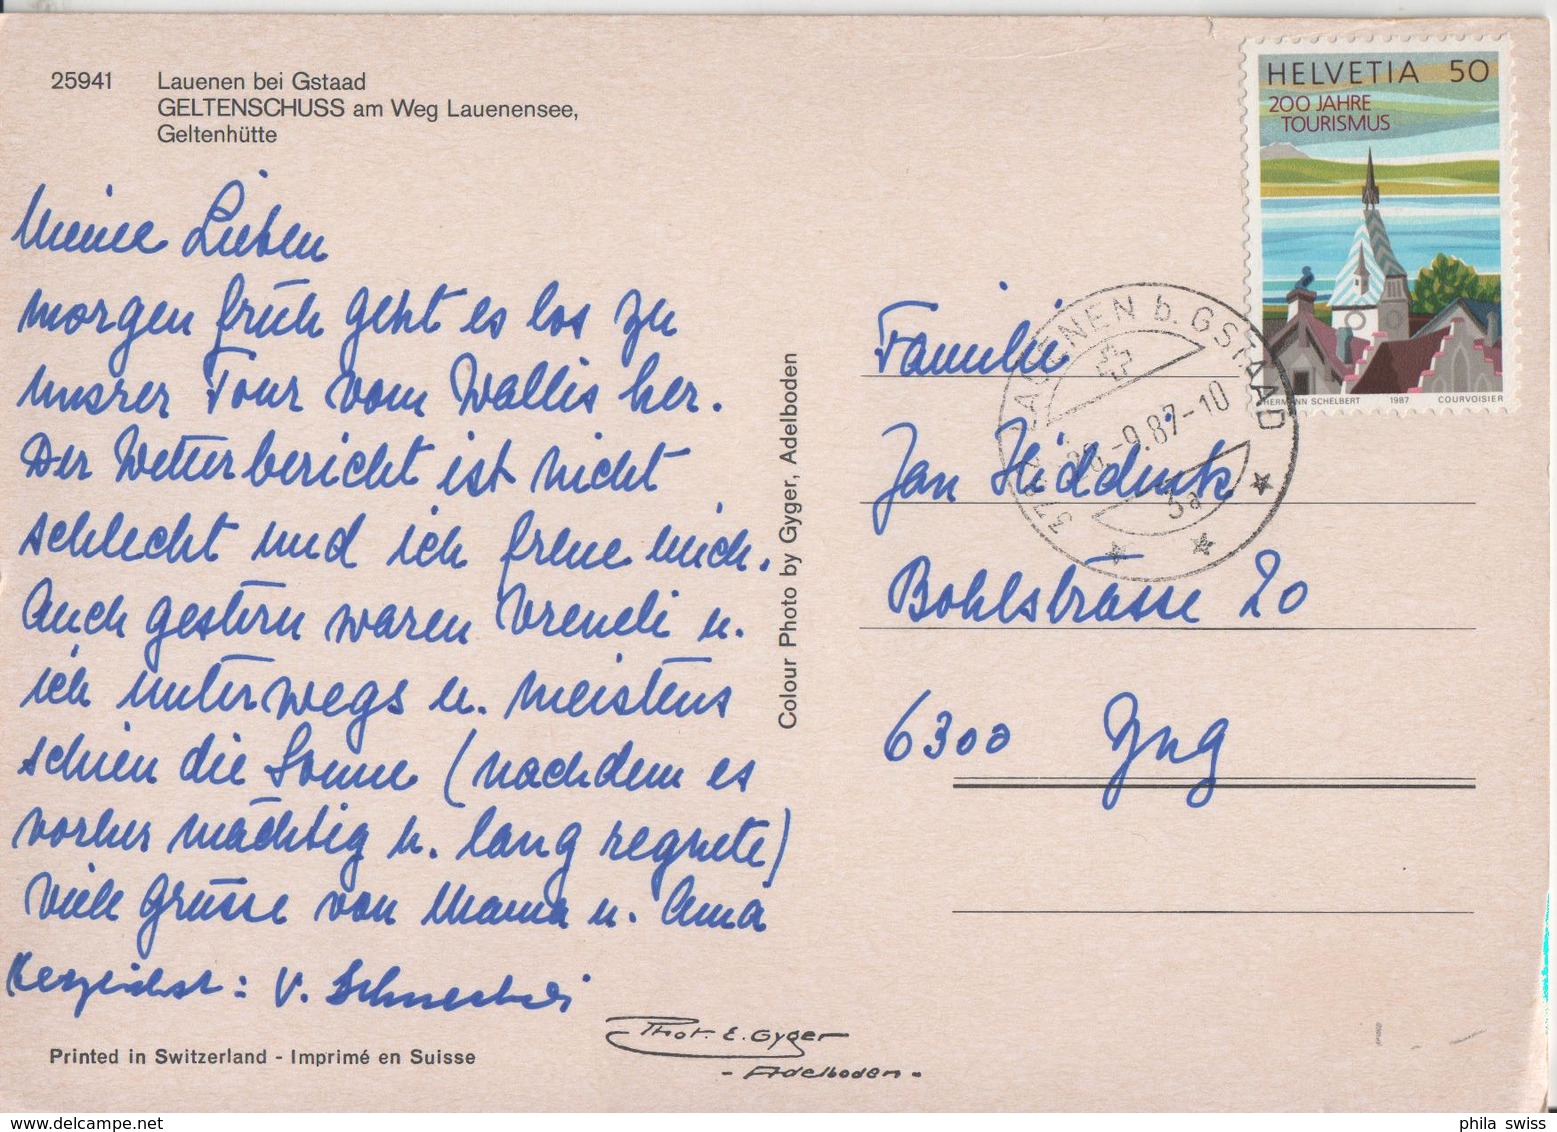 25941 Lauenen bei Gstaad
GELTENSCHUSS am Weg Lauenensee,
Geltenhütte
Meine Lieben
morgen früh geht es los zu
unsrer Tour vom Wallis her.
Der Wetterbericht ist nicht
schlecht und ich freue mich.
Auch gestern waren Vreneli u.
ich unterwegs u. meistens
schien die Sonne (nachdem es
vorher mächtig u. lang regnete)
Viele Grüsse von Mama u. Oma
V.
Printed in Switzerland - Imprimé en Suisse
Phot. E. Gyger
- Adelboden -
Colour Photo by Gyger, Adelboden
HELVETIA 50
200 JAHRE
TOURISMUS
HERMANN SCHELBERT 1987 COURVOISIER
LAUENEN b. GSTAAD
-9.87-10
3a
Familie
Jan Hiddink
Bohlstrasse 20
6300 Zug
phila swiss